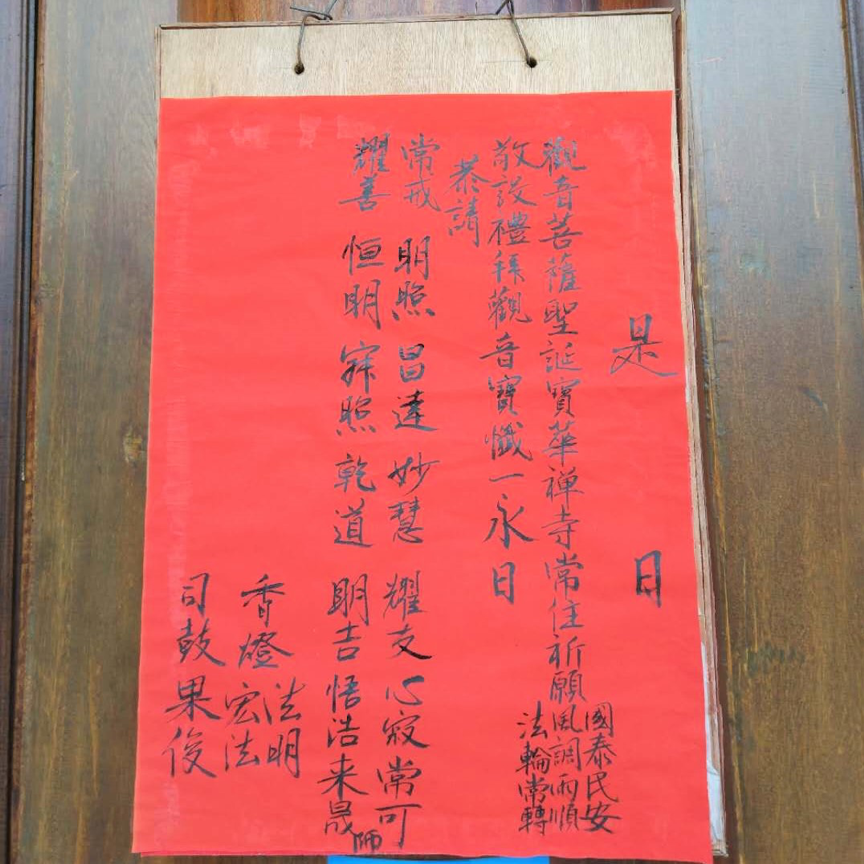 是日
觀音菩薩聖誕寶華禪寺常住祈願風調雨順
國泰民安
法輪常轉
敬設禮拜觀音寶懺一永日
恭請
常戒 明照 昌達 妙慧 耀支 心寂 常可
耀善 恒明 寂照 乾道 明吉 悟浩 来晟
師
香燈 宏法 法明
司鼓 果俊